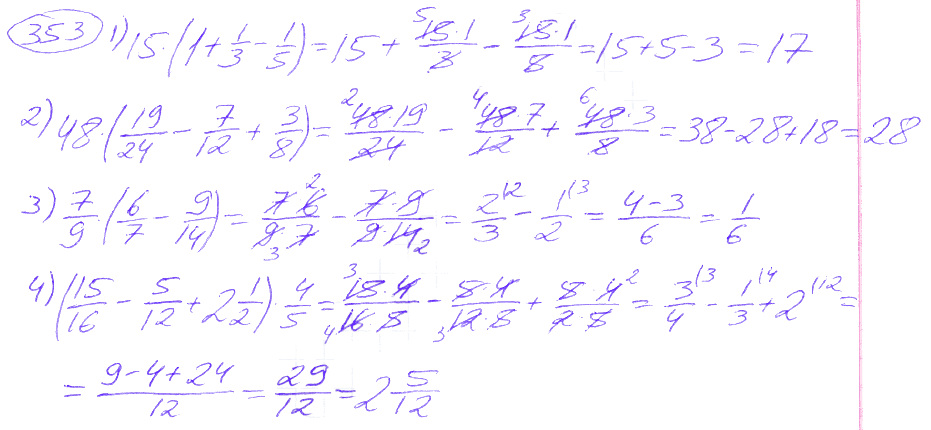 353 1) 15·(1+1/3-1/5)=15+15·1/3-15·1/5=15+5-3=17
2) 48·(19/24-7/12+3/8)=48·19/24-48·7/12+48·3/8=38-28+18=28
3) 7/9·(6/7-9/14)=7·6/9·7-7·9/9·14=2/3-1/2=4-3/6=1/6
4) (15/16-5/12+2 1/2)·4/5=15·4/16·5-5·4/12·5+5·4/2·5=3/4-1/3+2=
=9-4+24/12=29/12=2 5/12